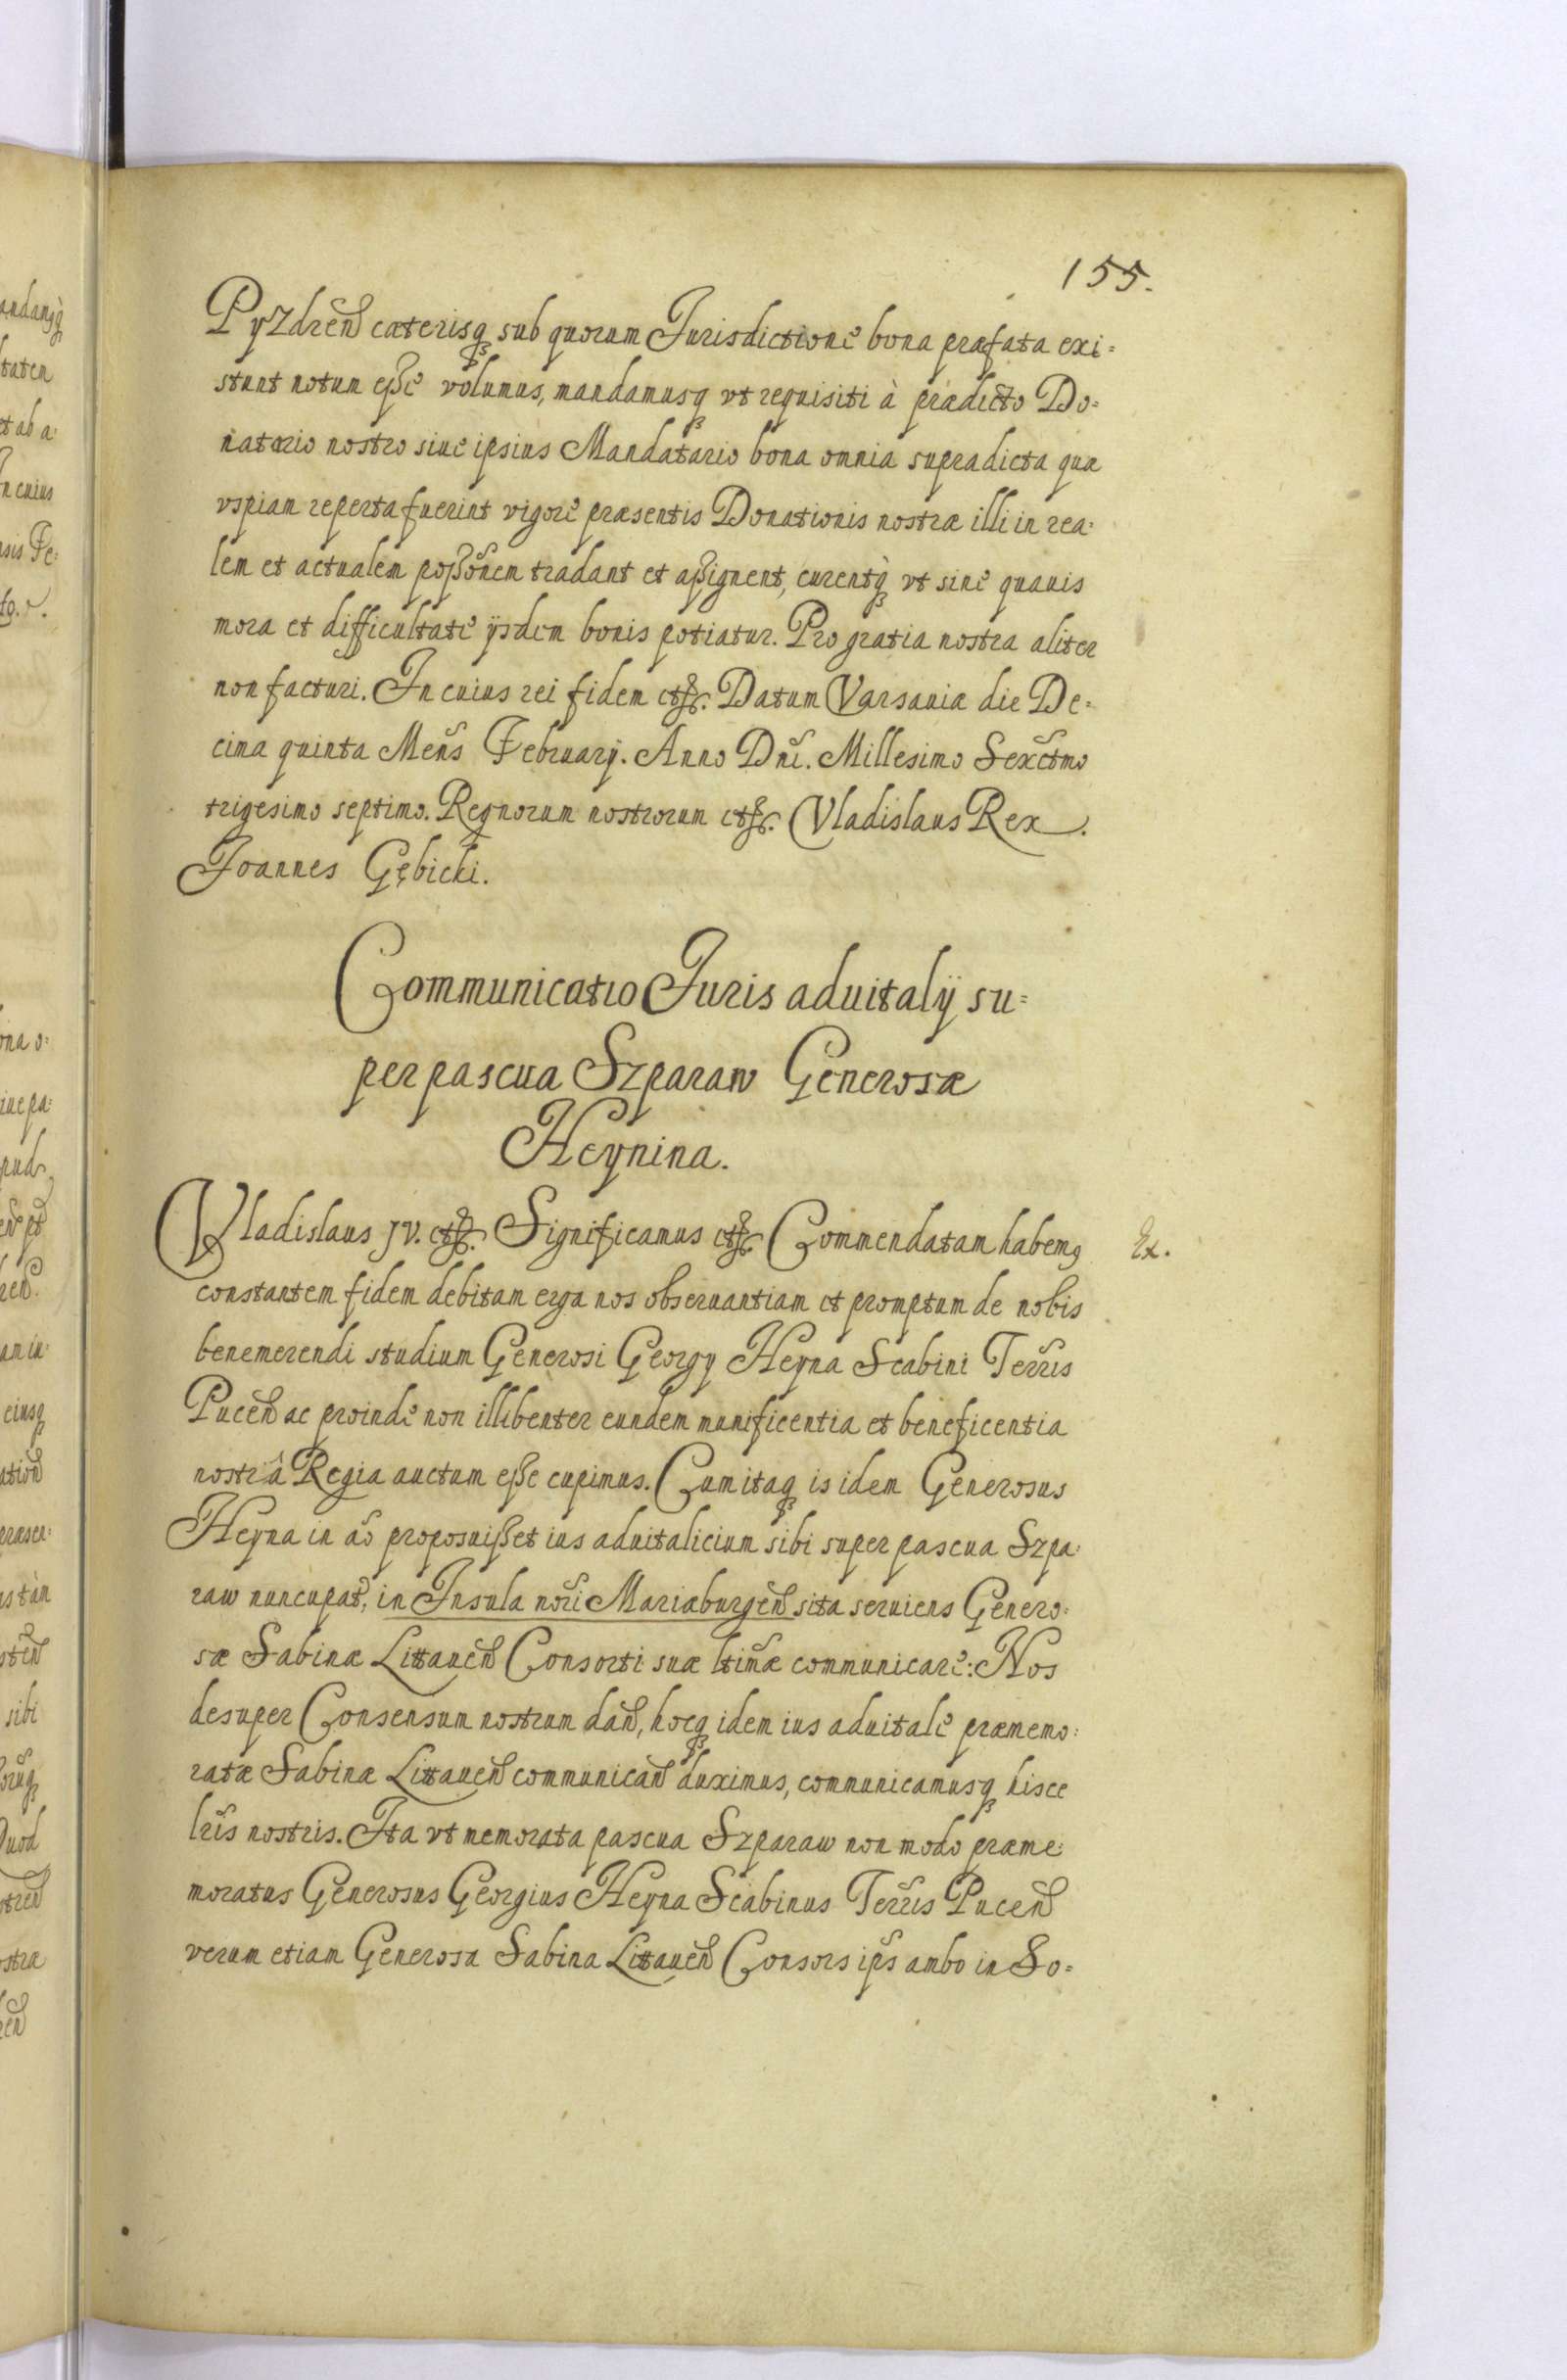 155.
Pyzdren̄ cæterisq sub quorum Jurisdictione bona præfata exi=
stunt notum esse volumus, mandamusq vt requisiti à prædicto Do=
natario nostro siue ipsius Mandatario bona omnia supradicta quæ
vspiam reperta fuerint vigore præsentis Donationis nostræ illi in rea=
lem et actualem possonem tradant et assignent, curentq vt sine quauis
mora et difficultate ÿsdem bonis potiatur. Pro gratia nostra aliter
non facturi. In cuius rei fidem etc. Datum Varsauiæ die De=
cima quinta Mens Februarÿ. Anno Dni. Millesimo Sexctmo
trigesimo septimo. Regnorum nostrorum etc. Vladislaus Rex.
Joannes Gębicki.
Communicatio Juris aduitalÿ su=
per pascua Szparaw Generosæ
Heynina.
Vladislaus IV. etc. Significamus etc. Commendatam habemq
Ex.
constantem fidem debitam erga nos obseruantiam et promptum de nobis
benemerendi studium Generosi Georgy Heyna Scabini Terris
Pucen̄ ac proinde non illibenter eundem munificentia et beneficentia
nostrâ Regia auctum esse cupimus. Cum itaq is idem Generosus
Heyna in ao proposuisset ius aduitalicium sibi super pascua Szpa=
raw nuncupat, in Insula nori Mariæburgen̄ sita seruiens Genero=
sæ Sabinæ Littauen̄ Consorti suæ ltimæ communicare: Nos
desuper Consensum nostrum dan̄, hocq idem ius aduitale præmemo=
ratæ Sabinæ Littauen̄ communican̄ duximus, communicamusq hisce
lris nostris. Ita vt memorata pascua Szparaw non modo præme=
moratus Generosus Georgius Heyna Scabinus Terris Pucen̄
verum etiam Generosa Sabina Littauen̄ Consors ips ambo in So=